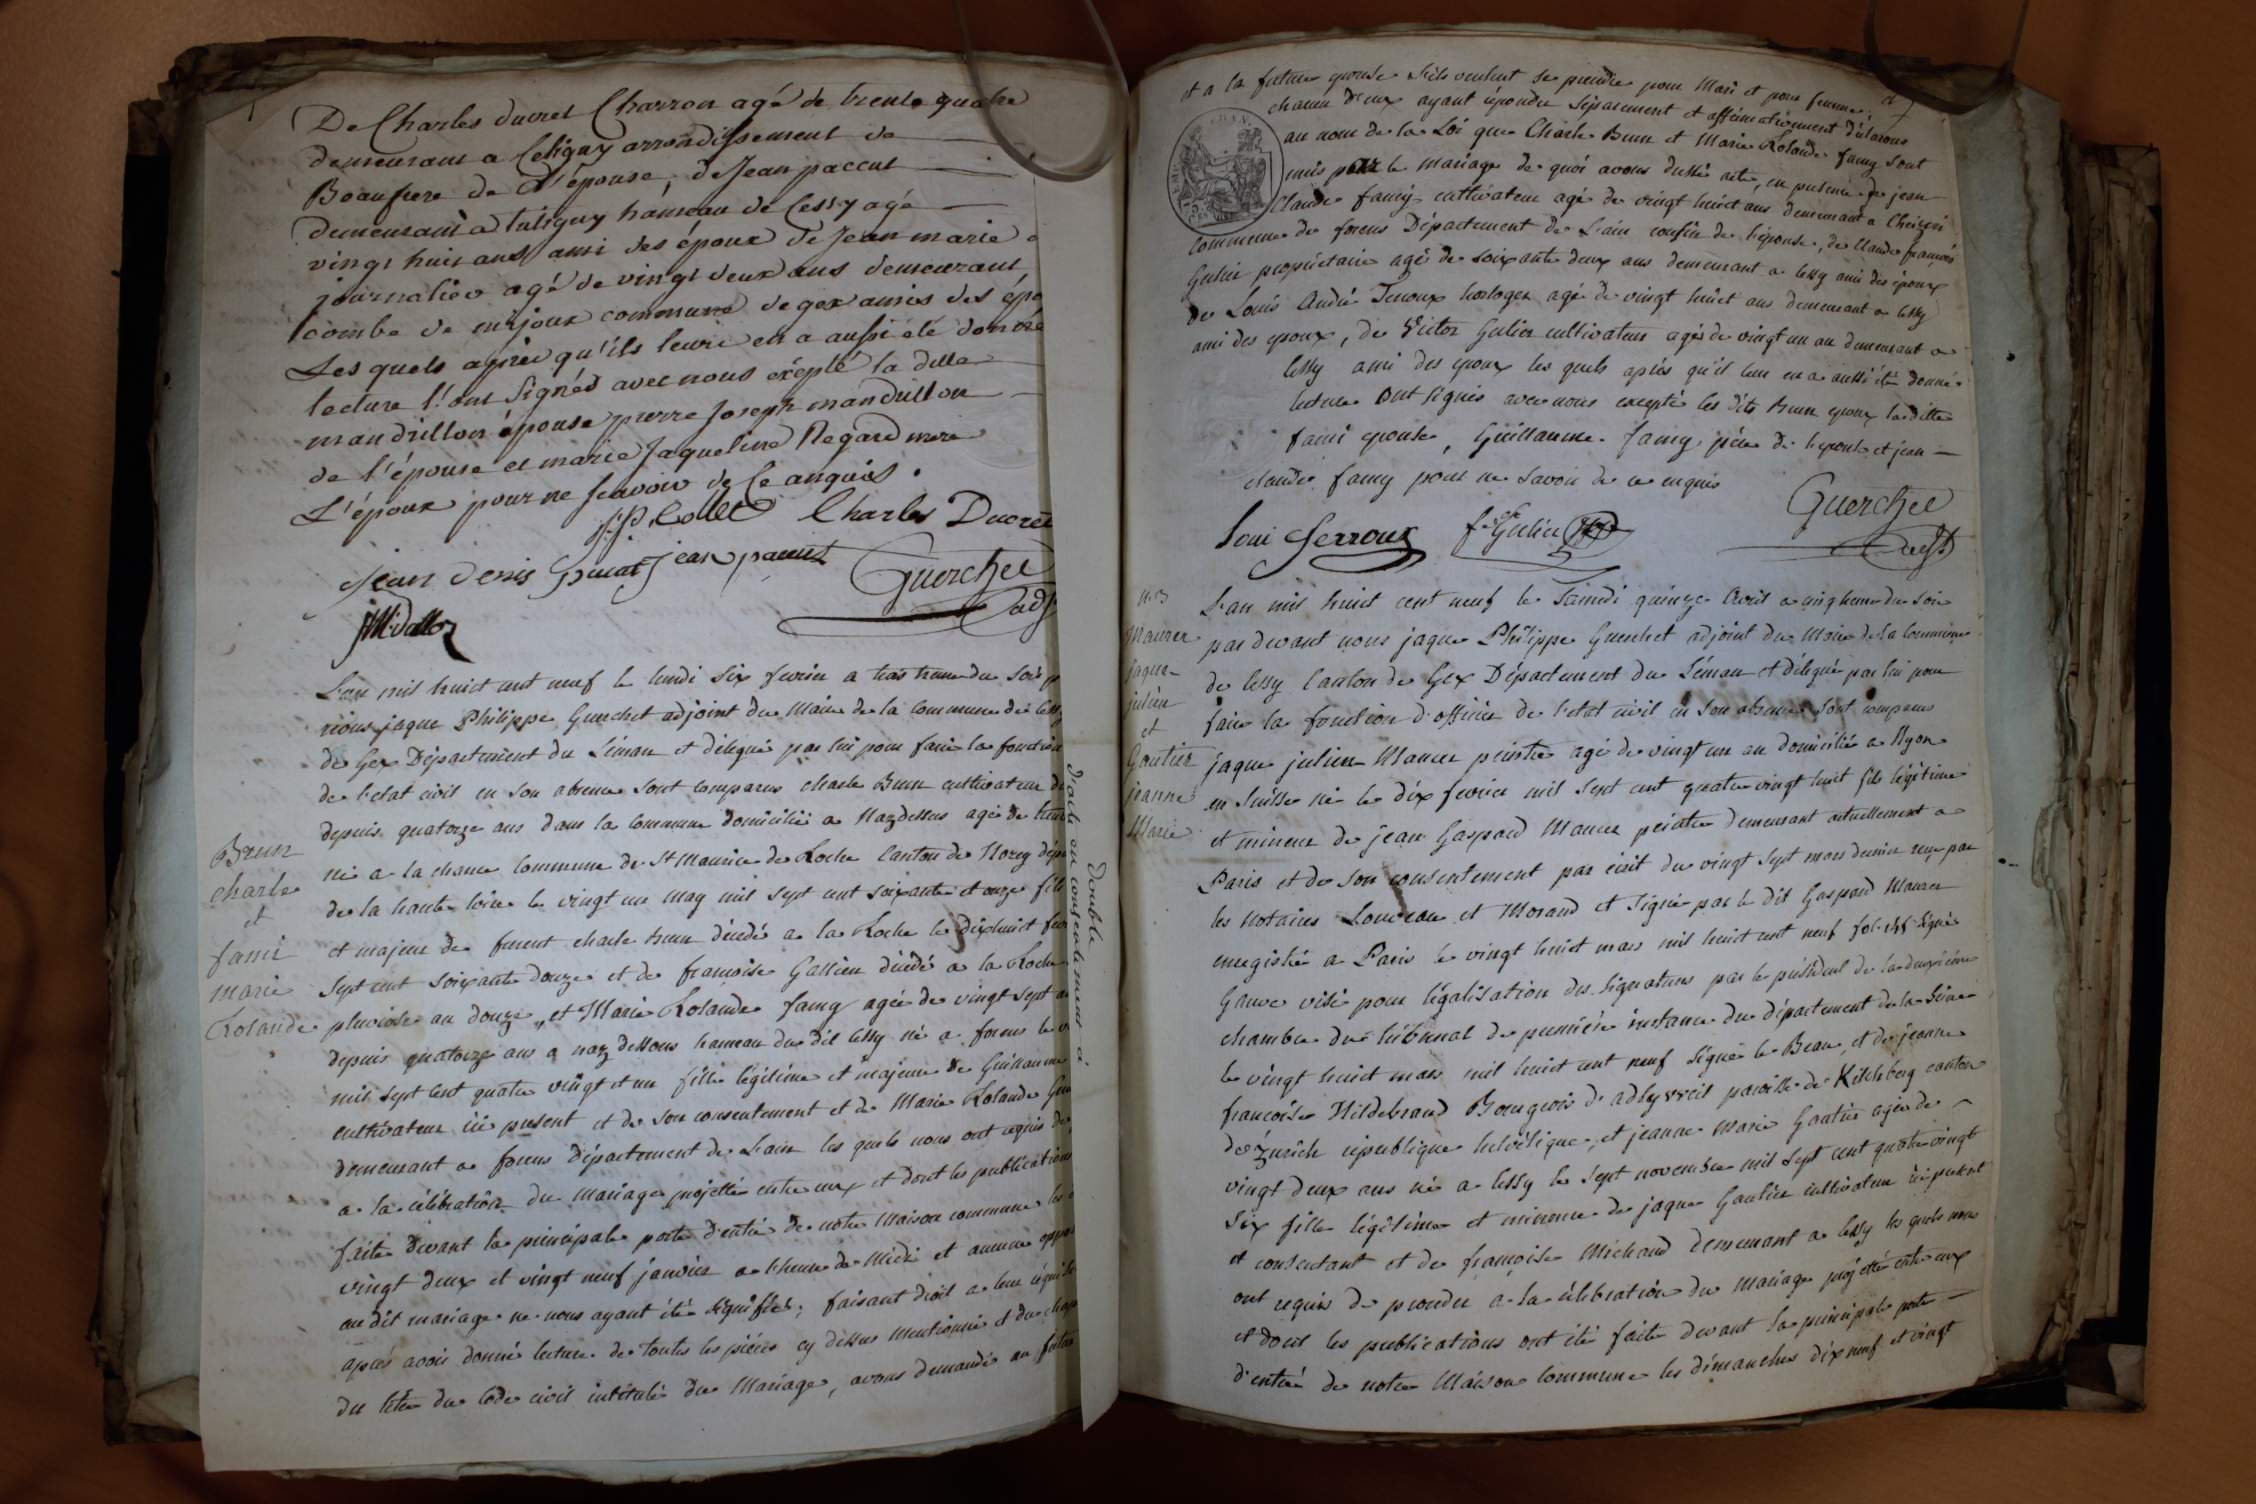 De Charles ducret Charron agé de trente quatre
demeurant a Celigny arrondissement de
Beaufrere de l'épouse, de Jean paccut
demeurant a tutigny hameau de Cessy agé
vingt huit ans ami des époux de Jean marie
journalier agé de vingt deux ans demeurant
combe de mijoux commune de gex amis des épo
Les quels après qu'ils leur en a aussi été donné
lecture l'ont Signés avec nous éxépté la ditte
mandrillon épouse pierre Joseph mandrillon
de l'épouse et marie Jaqueline Regard mere
L'époux pour ne Scavoir de Ce anquis.
Charles Ducret
Jean Denis jean paccut Guerchet
adj
L'an mil huict cent neuf le lundi six fevrier a trois heure du soir p
nous jaque Philippe Guerchet adjoint du Maire de la Commune de Cessy
de Gex Département du Léman et délegué par lui pour faire la fonction
de l'etat civil en son absence sont comparus charle Brun cultivateur de
depuis quatorze ans dans la commune domicilié a Nazdessus agé de trente
né a la chaux Commune de St Maurice de Roche Canton de Dépa
de la haute loire le vingt un may mil sept cent soixante et onze fils
et majeur de furent charle brun décedé a la Roche le dixhuict
sept cent soixante douze et de françoise Gallien décédé a la Roche
pluviose an douze, et Marie Rolande famy agée de vingt sept an
depuis quatorze ans a naz dessous hameau du dit Cessy né a forens le
mil sept cent quatre vingt et un fille légitime et majeure de Guillaume
cultivateur ici présent et de son consentement et de Marie Rolande
demeurant a forens département de Lain les quels nous ont requis de
a la célébration du mariage projetté entre eux et dont les publications
faite devant la principale porte d'entrée de notre Maison commune les
vingt deux et vingt neuf janvier a l'heure de Midi et aucune oppo
au dit mariage ne nous ayant été signifiée; faisant droit a leur réquisi
après avoir donné lecture de toutes les pièces cy dessus mentionné et du chap
du titre du Code civil intitulé du Mariage, avons demandé au futur
Brun
charle
et
famii
marie
Rolande
double
d'acte au consentement à
et a la future epouse s'ils veulent se prendre pour Mari et pour femme; et
chacun d'eux ayant répondu séparement et affirmativement déclarons
au nom de la Loi que Charle Brun et Marie Rolande famy sont
unis par le mariage de quoi avons dressé acte, en présence de jean
Claude famy cultivateur agé de vingt huict ans demeurant a
Commune de forens Département de Lain cousin de l'épouse, de Claude françois
Gulier propriétaire agé de soixante deux ans demeurant a Cessy ami des époux
de Louis André horloger agé de vingt huict ans demeurant a Cessy
ami des epoux, de Victor Gulier cultivateur agé de vingt un an demeurant a
Cessy ami des epoux les quels après qu'il leur en a aussi été donné
lecture ont signés avec nous excepté les dits brun epoux la ditte
famii epouse, Guillaume famy père de l'epouse et jean
claude famy pour ne savoir de ce enquis
Guerchet
Gulier
adjt
L'an mil huict cent neuf le Samedi quinze Avril a cinq heure du soir
par devant nous jaque Philippe Guerchet adjoint du Maire de la Commune
de Cessy Canton de Gex Département du Léman et délegué par lui pour
faire la fonction d'officier de l'etat civil en son absence sont comparus
jaque julien Maurer peintre agé de vingt un an domicilié a Nyon
en Suisse né le dix fevrier mil sept cent quatre vingt huict fils légitime
et mineur de jean Gaspard Maurer peintre demeurant actuellement a
Paris et de son consentement par écrit du vingt sept mars dernier reçu par
les notaires et Morand et Signé par le dit Gaspard Maurer
enregistré a Paris le vingt huict mars mil huict cent neuf signé
visé pour légalisation des signatures par le président de la deuxième
chambre du tribunal de première instance du département de la Seine
le vingt huict mars mil huict cent neuf signé le Beau, et de jeanne
françoise Hildebrand Bourgeois d' paroisse de Kilchberg canton
de Zurich république helvétique, et jeanne Marie Gautier agée de
vingt deux ans né a Cessy le sept novembre mil sept cent quatre vingt
Six fille légitime et mineure de jaque Gautier cultivateur ici présent
et consentant et de françoise Michaud demeurant a Cessy les quels nous
ont requis de proceder a la célébration du mariage projetté entre eux
et dont les publications ont été faite devant la principale porte
d'entrée de notre Maison Commune les dimanches dix neuf et vingt
Maurer
jaque
julien
et
Gautier
jeanne
Marie